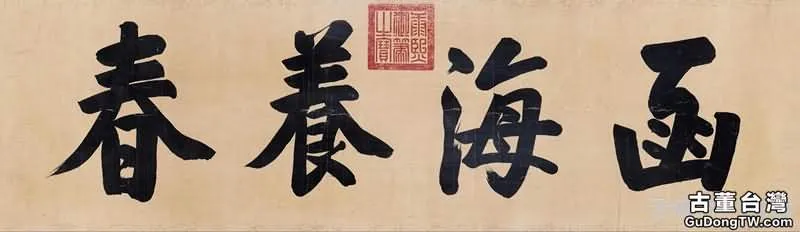 函海養春
康熙
御筆
之寶
古董台灣
GuDongTW.com